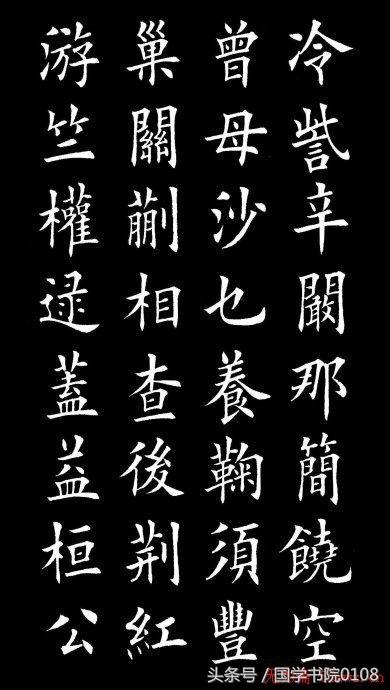 冷訾辛闞那簡饒空
曾母沙乜養鞠須豐
巢關蒯相查後荊紅
游竺權逯蓋益桓公
头条号 / 国学书院0108